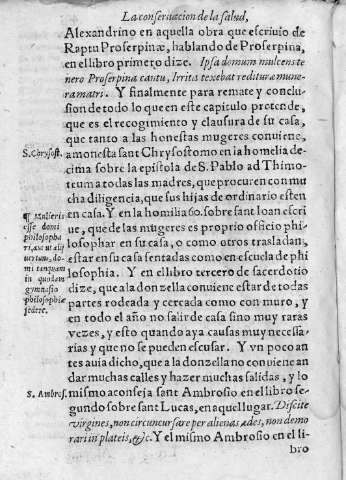 La conseruacion de la salud,
Alexandrino en aquella obra que escriuio de
Raptu Proserpinæ, hablando de Proserpina,
en el libro primero dize. Ipsa domum mulcens te
nero Proserpina cantu, Irrita texebat redituræ mune-
ra matri. Y finalmente para remate y conclu-
sion de todo lo que en este capitulo pretende,
que es el recogimiento y clausura de su casa,
que tanto a las honestas mugeres conuiene,
S. Chrysost.
amonesta sant Chrysostomo en la homelia de-
cima sobre la epistola de S. Pablo ad Thimo-
teum a todas las madres, que procuren con mu
cha diligencia, que sus hijas de ordinario esten
en casa. Y en la homilia 60. sobre sant Ioan escri
ue, que de las mugeres es proprio officio phi-
losophar en su casa, o como otros trasladan,
estar en su casa sentadas como en escuela de phi
losophia. Y en el libro tercero de sacerdotio
dize, que a la donzella conuiene estar de todas
partes rodeada y cercada como con muro, y
en todo el año no salir de casa sino muy raras
vezes, y esto quando aya causas muy necessa-
rias y que se pueden escusar. Y vn poco an
tes auia dicho, que a la donzella no conuiene an
dar muchas calles y hazer muchas salidas, y lo
¶ Mulieris
esse domi
philosopha
ri, aut vt alij
uertunt, do-
mi tanquam
in quodam
gymnasio
philosophiæ
sedere.
S. Ambros.
mismo aconseja sant Ambrosio en el libro se-
gundo sobre sant Lucas, en aquel lugar. Discite
virgines, non circuncursare per alienas ædes, non demo
rari in plateis, &c. Y el mismo Ambrosio en el li-
bro